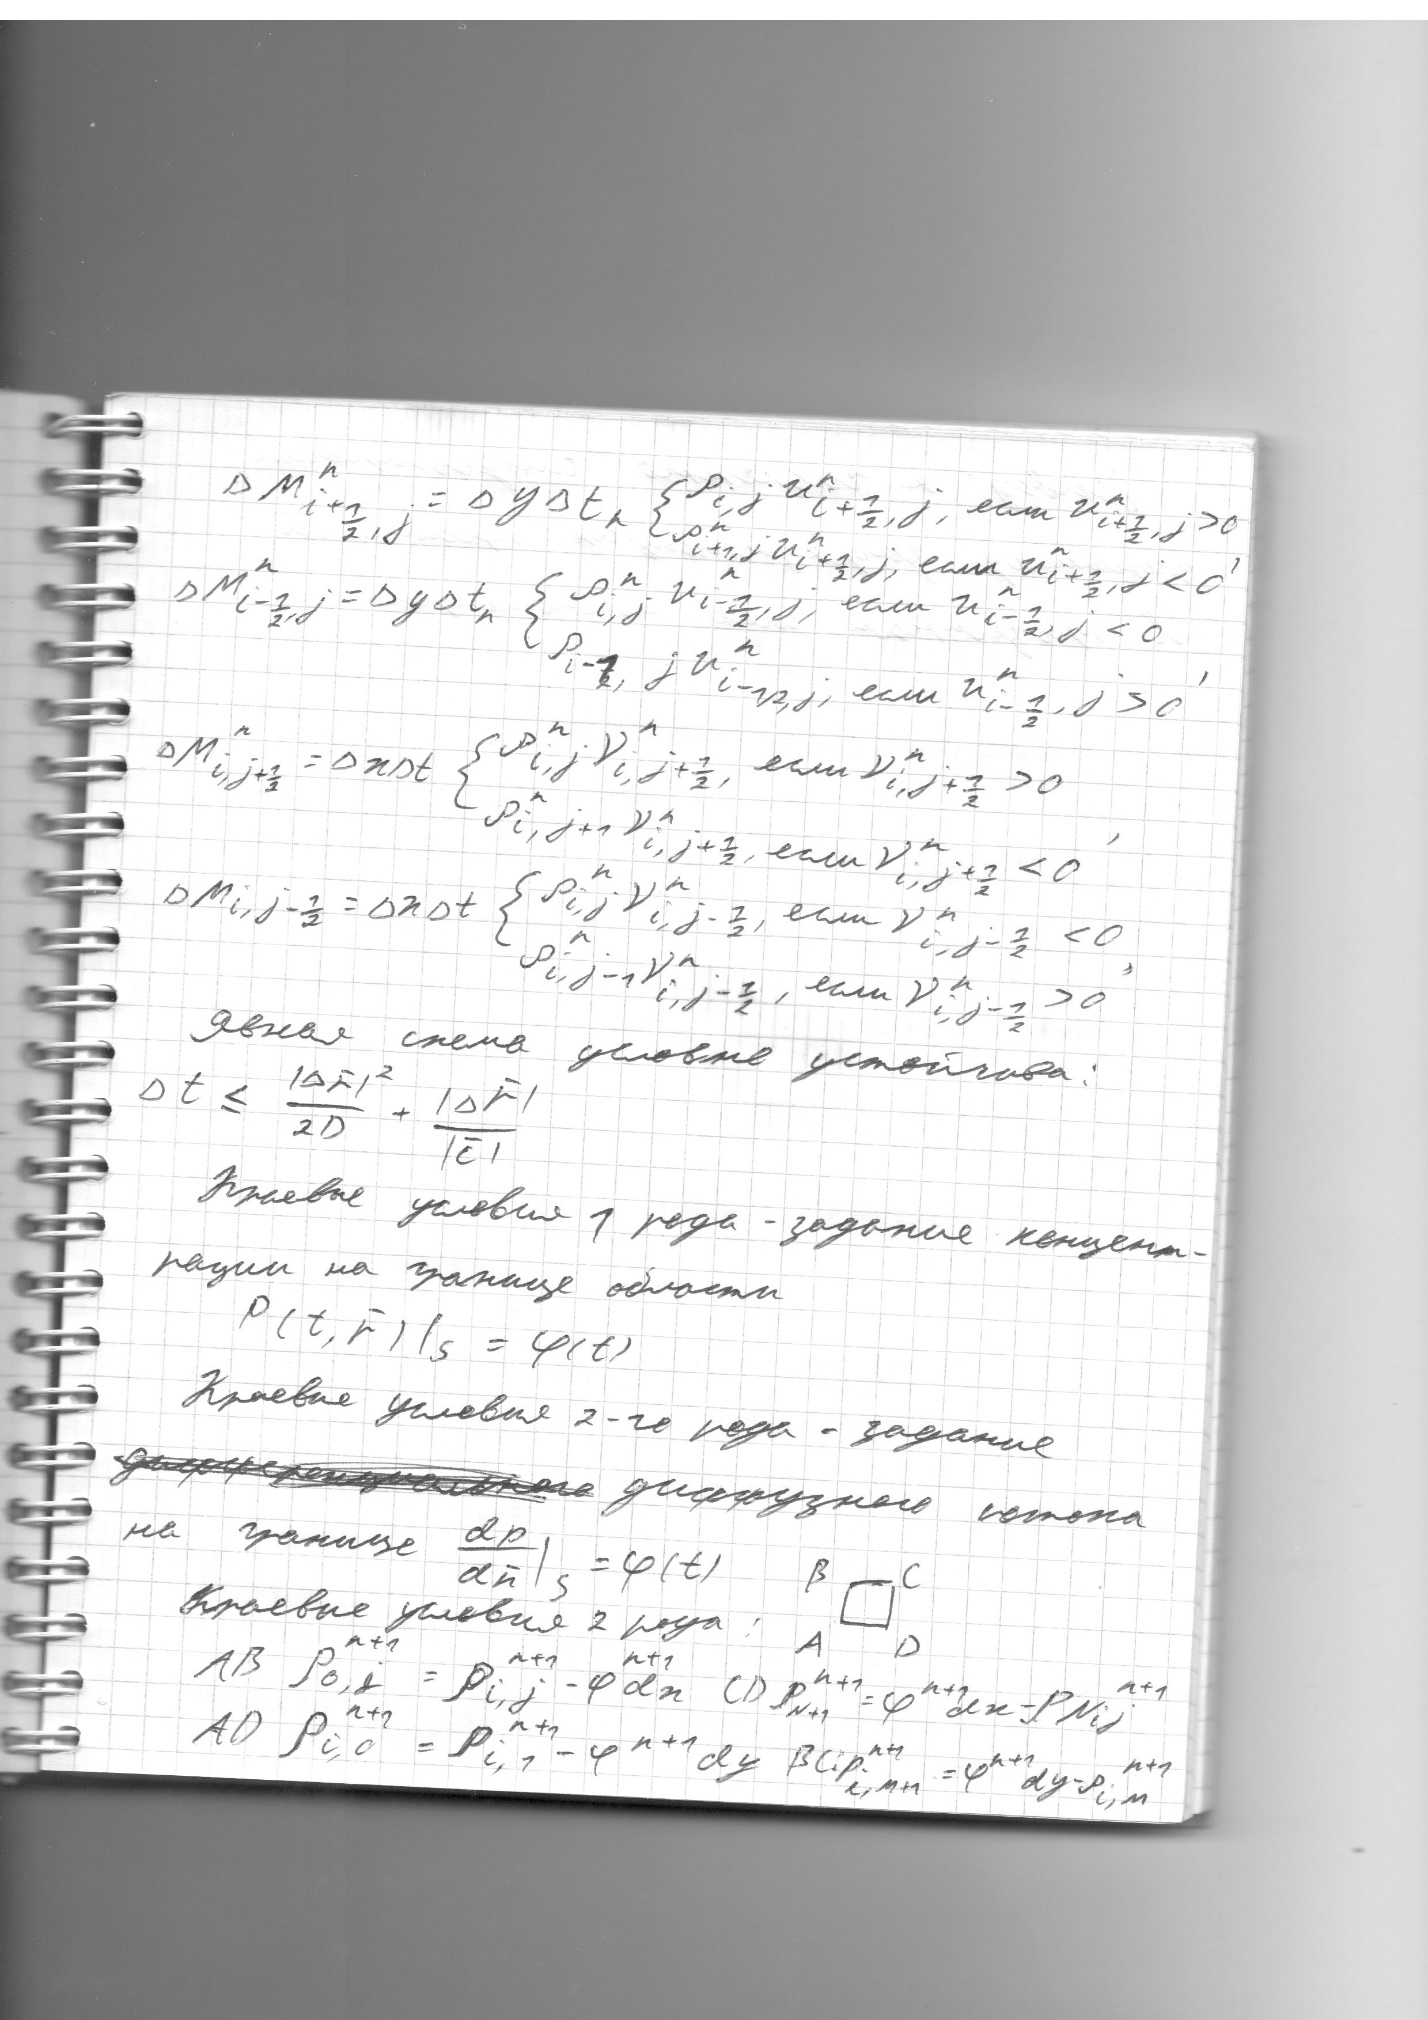 ΔM^n_{i+1/2,j} = ΔyΔt_n { ρ_{i,j} u^n_{i+1/2,j}, если u^n_{i+1/2,j} > 0
ρ^n_{i+1,j} u^n_{i+1/2,j}, если u^n_{i+1/2,j} < 0 ,
ΔM^n_{i-1/2,j} = ΔyΔt_n { ρ^n_{i,j} u^n_{i-1/2,j}, если u^n_{i-1/2,j} < 0
ρ_{i-1,j} u^n_{i-1/2,j}, если u^n_{i-1/2,j} > 0 ,
ΔM^n_{i,j+1/2} = ΔxΔt { ρ^n_{i,j} V^n_{i,j+1/2}, если V^n_{i,j+1/2} > 0
ρ^n_{i,j+1} V^n_{i,j+1/2}, если V^n_{i,j+1/2} < 0 ,
ΔM_{i,j-1/2} = ΔxΔt { ρ^n_{i,j} V^n_{i,j-1/2}, если V^n_{i,j-1/2} < 0
ρ^n_{i,j-1} V^n_{i,j-1/2}, если V^n_{i,j-1/2} > 0 ,
Явная схема условно устойчива:
Δt ≤ |Δr̄|²/2D + |Δr̄|/|c̄|
Краевые условия 1 рода - задание концент-
рации на границе области
ρ(t, r̄)|_S = φ(t)
Краевые условия 2-го рода - задание
диффузного потока
на границе dρ/dn̄|_S = φ(t) B C
Краевые условия 2 рода: A D
AB ρ^{n+1}_{0,j} = ρ^{n+1}_{i,j} - φ^{n+1}dx CD ρ^{n+1}_{N+1} = φ^{n+1}dx - ρ^{n+1}_{N,j}
AD ρ^{n+1}_{i,0} = ρ^{n+1}_{i,1} - φ^{n+1}dy BC: ρ^{n+1}_{i,M+1} = φ^{n+1}dy - ρ^{n+1}_{i,M}